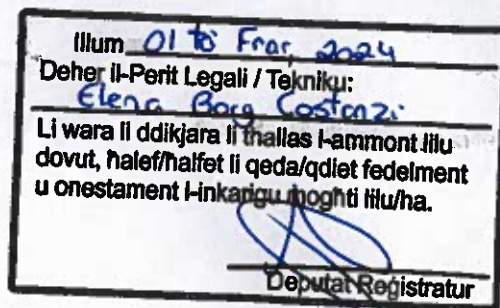 Illum 01 ta' Frar, 2024
Deher il-Perit Legali / Tekniku:
Elena Borg Costanzi
Li wara li ddikjara li tħallas l-ammont lilu
dovut, ħalef/ħalfet li qeda/qdiet fedelment
u onestament l-inkarigu mogħti lilu/ha.
Deputat Reġistratur